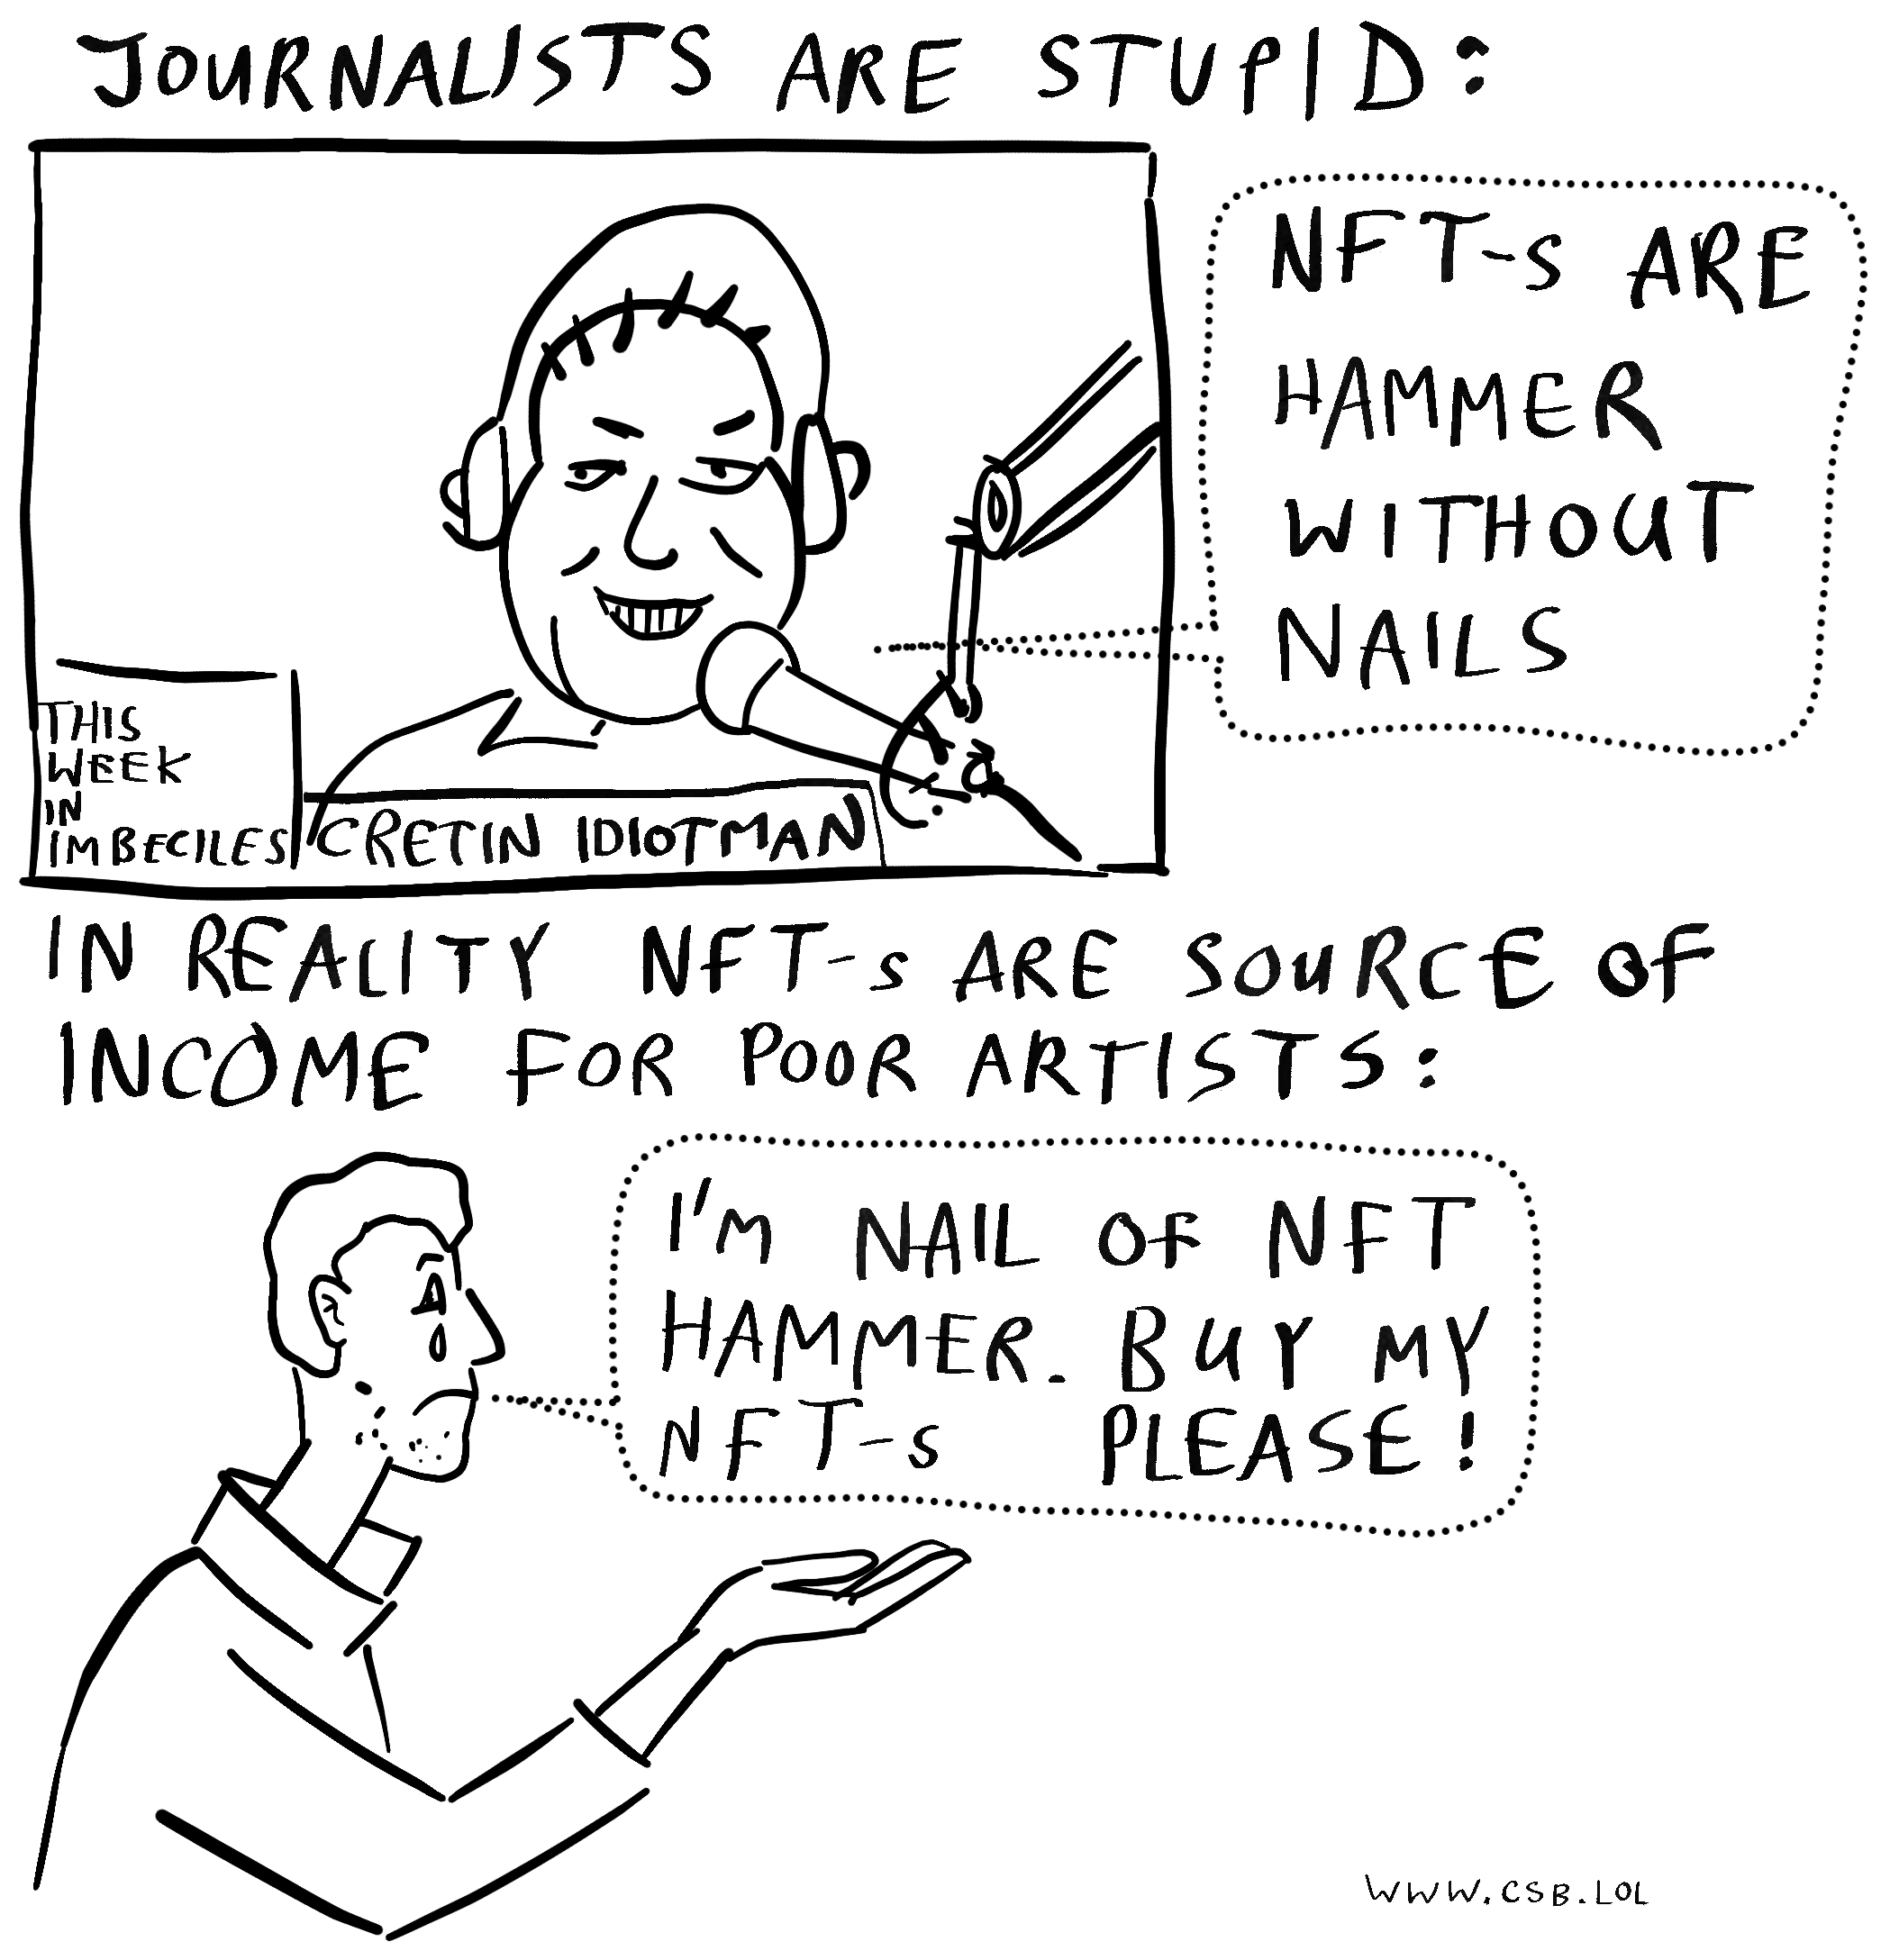 JOURNALISTS ARE STUPID:
NFT-s ARE
HAMMER
WITHOUT
NAILS
THIS
WEEK
IN
IMBECILES
CRETIN IDIOTMAN
IN REALITY NFT-s ARE SOURCE OF
INCOME FOR POOR ARTISTS:
I'M NAIL OF NFT
HAMMER. BUY MY
NFT-s PLEASE!
WWW.CSB.LOL